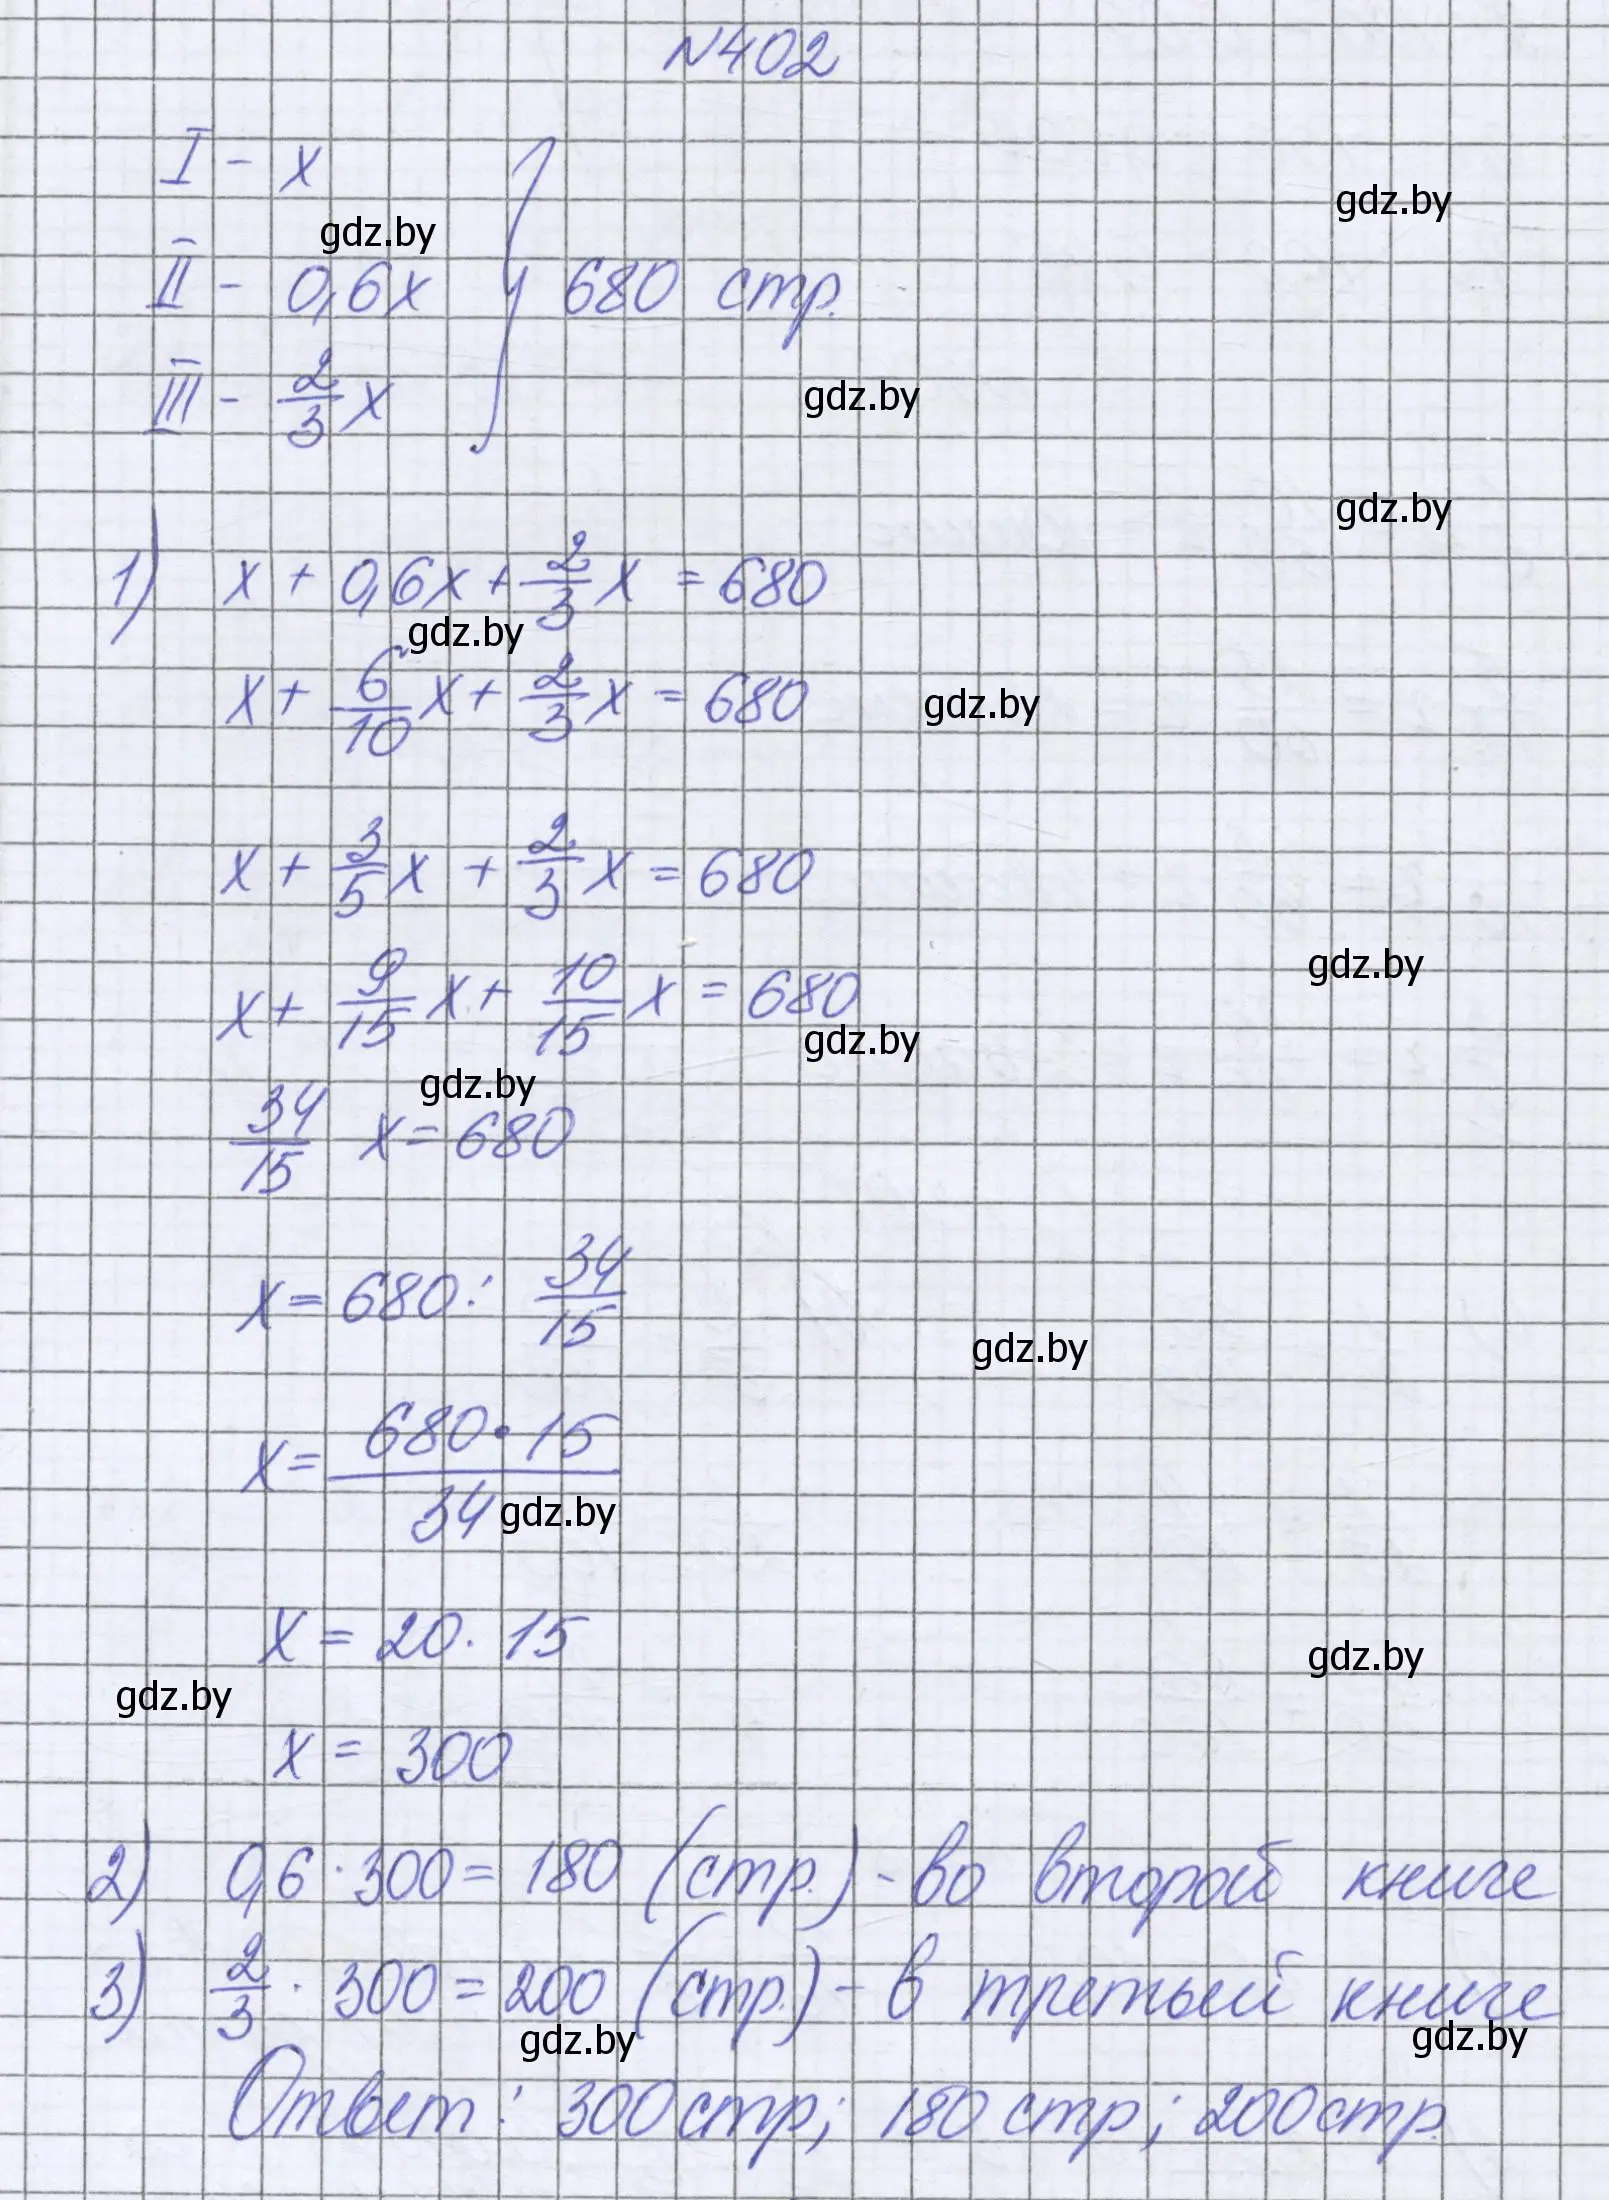 №402
I - x
gdz.by
gdz.by
II - 0,6x } 680 стр.
III - 2/3 x
gdz.by
gdz.by
1) x + 0,6x + 2/3 x = 680
gdz.by
x + 6/10 x + 2/3 x = 680
gdz.by
x + 3/5 x + 2/3 x = 680
gdz.by
x + 9/15 x + 10/15 x = 680
gdz.by
gdz.by
34/15 x = 680
x = 680 : 34/15
gdz.by
x = 680 · 15 / 34
gdz.by
x = 20 · 15
gdz.by
gdz.by
x = 300
2) 0,6 · 300 = 180 (стр.) - во второй книге
3) 2/3 · 300 = 200 (стр.) - в третьей книге
gdz.by
gdz.by
Ответ: 300 стр; 180 стр; 200 стр.